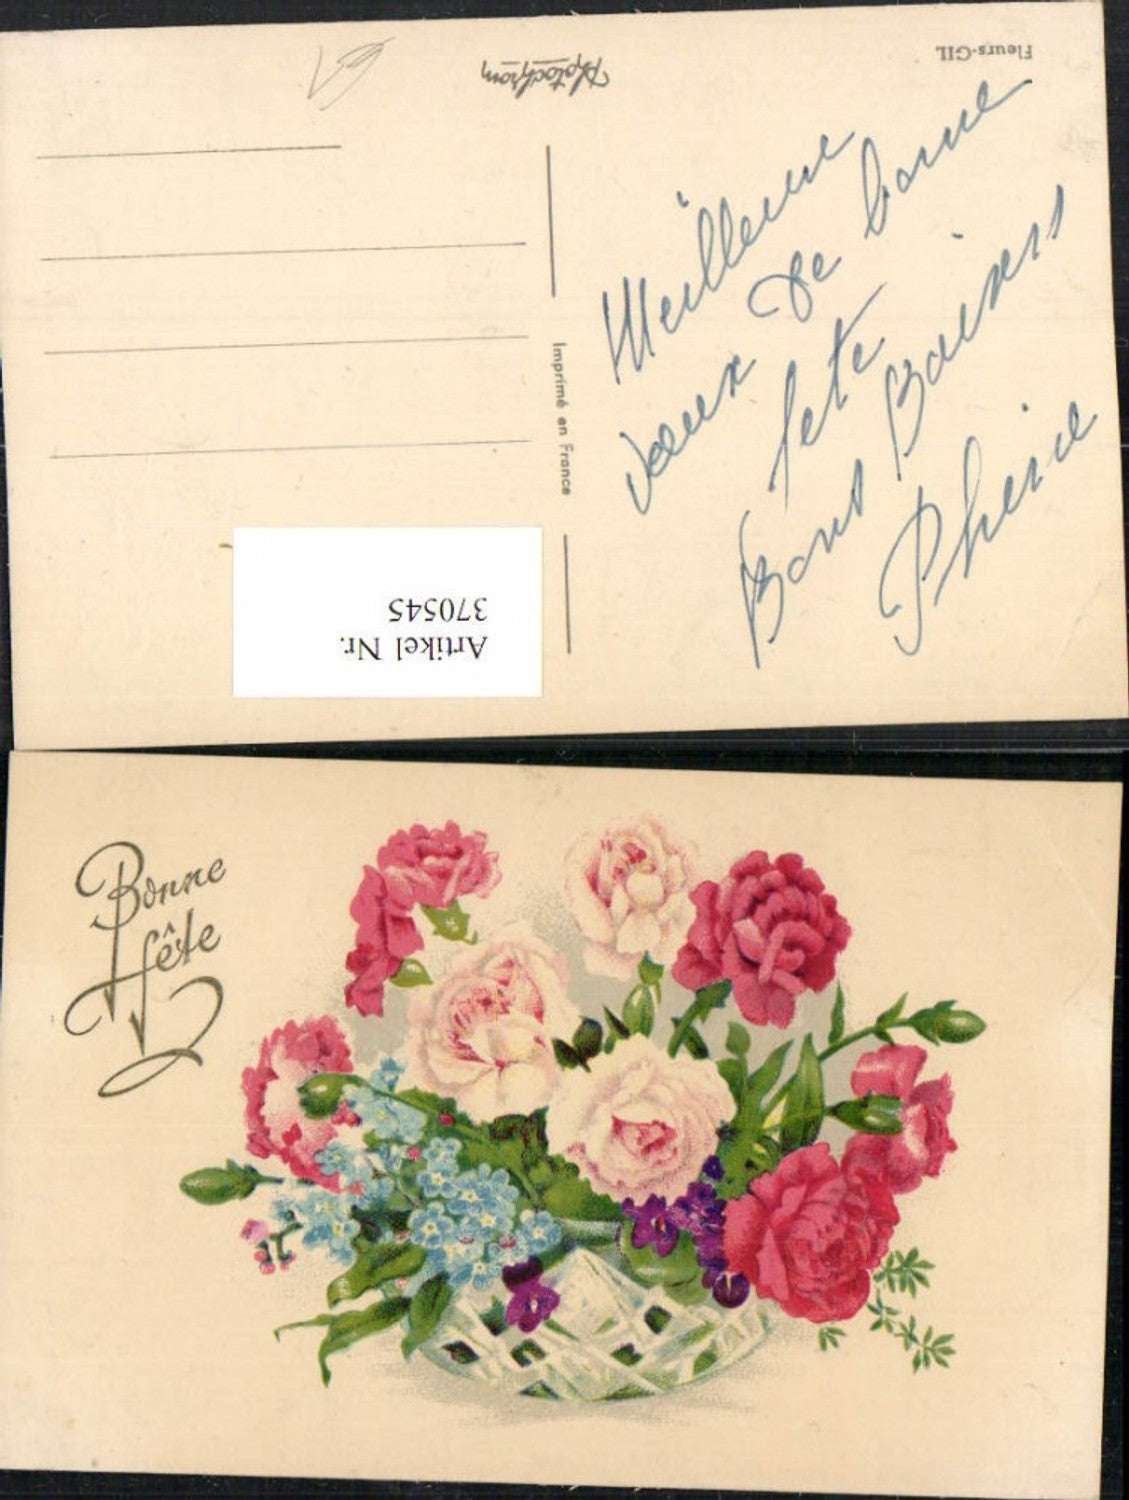 Fleurs-GIL
Photochrom
Meilleure
vœux de bonne
fete
Bons Baisers
Imprimé en France
Artikel Nr.
370545
Bonne
fête